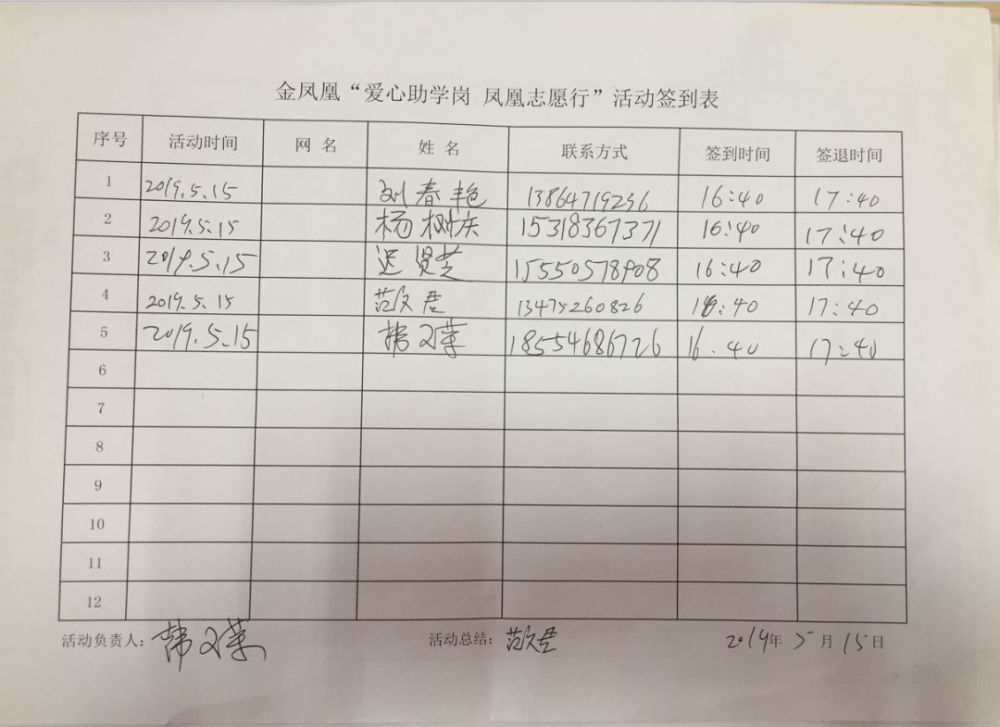 金凤凰“爱心助学岗 凤凰志愿行”活动签到表
序号 活动时间 网 名 姓 名 联系方式 签到时间 签退时间
1 2019.5.15 刘春艳 13864719236 16:40 17:40
2 2019.5.15 杨树庆 15318367371 16:40 17:40
3 2019.5.15 迟贤芝 15550578908 16:40 17:40
4 2019.5.15 范文君 13475260826 16:40 17:40
5 2019.5.15 韩文華 18554686726 16.40 17:40
6
7
8
9
10
11
12
活动负责人: 韩文華 活动总结: 范文君 2019年 5月 15日